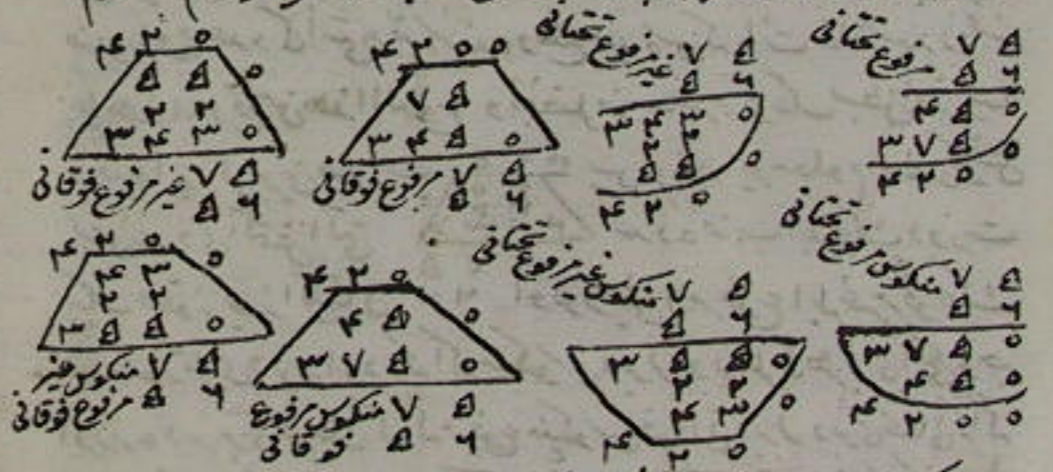 مرفوع تحتانی ۷ ۵
۵ ۶
۴ ۵ ۰
۳ ۷ ۵ ۰
۴ ۲ ۰
غیر مرفوع تحتانی ۷ ۵
۵ ۶
۳ ۴ ۳ ۰
۲ ۲
۵ ۵ ۰
۴ ۲ ۰
۴ ۲ ۰ ۰
۷ ۵
۳ ۴ ۵ ۰
مرفوع فوقانی ۷ ۵
۵ ۶
۴ ۲ ۰
۵ ۵ ۰
۲ ۲
۳ ۴ ۳ ۰
غیر مرفوع فوقانی ۷ ۵
۵ ۶
منکوس مرفوع تحتانی ۷ ۵
۵ ۶
۳ ۷ ۵ ۰
۴ ۵ ۰
۴ ۲ ۰ ۰
منکوس غیر مرفوع تحتانی ۷ ۵
۵ ۶
۳ ۵ ۵ ۰
۲ ۲
۴ ۳ ۰
۴ ۲ ۰
۴ ۲ ۰
۴ ۵ ۰
۳ ۷ ۵ ۰
منکوس مرفوع ۷ ۵
فوقانی ۵ ۶
۴ ۲ ۰ ۰
۴ ۳
۲ ۲
۳ ۵ ۵ ۰
منکوس غیر ۷ ۵
مرفوع فوقانی ۵ ۶